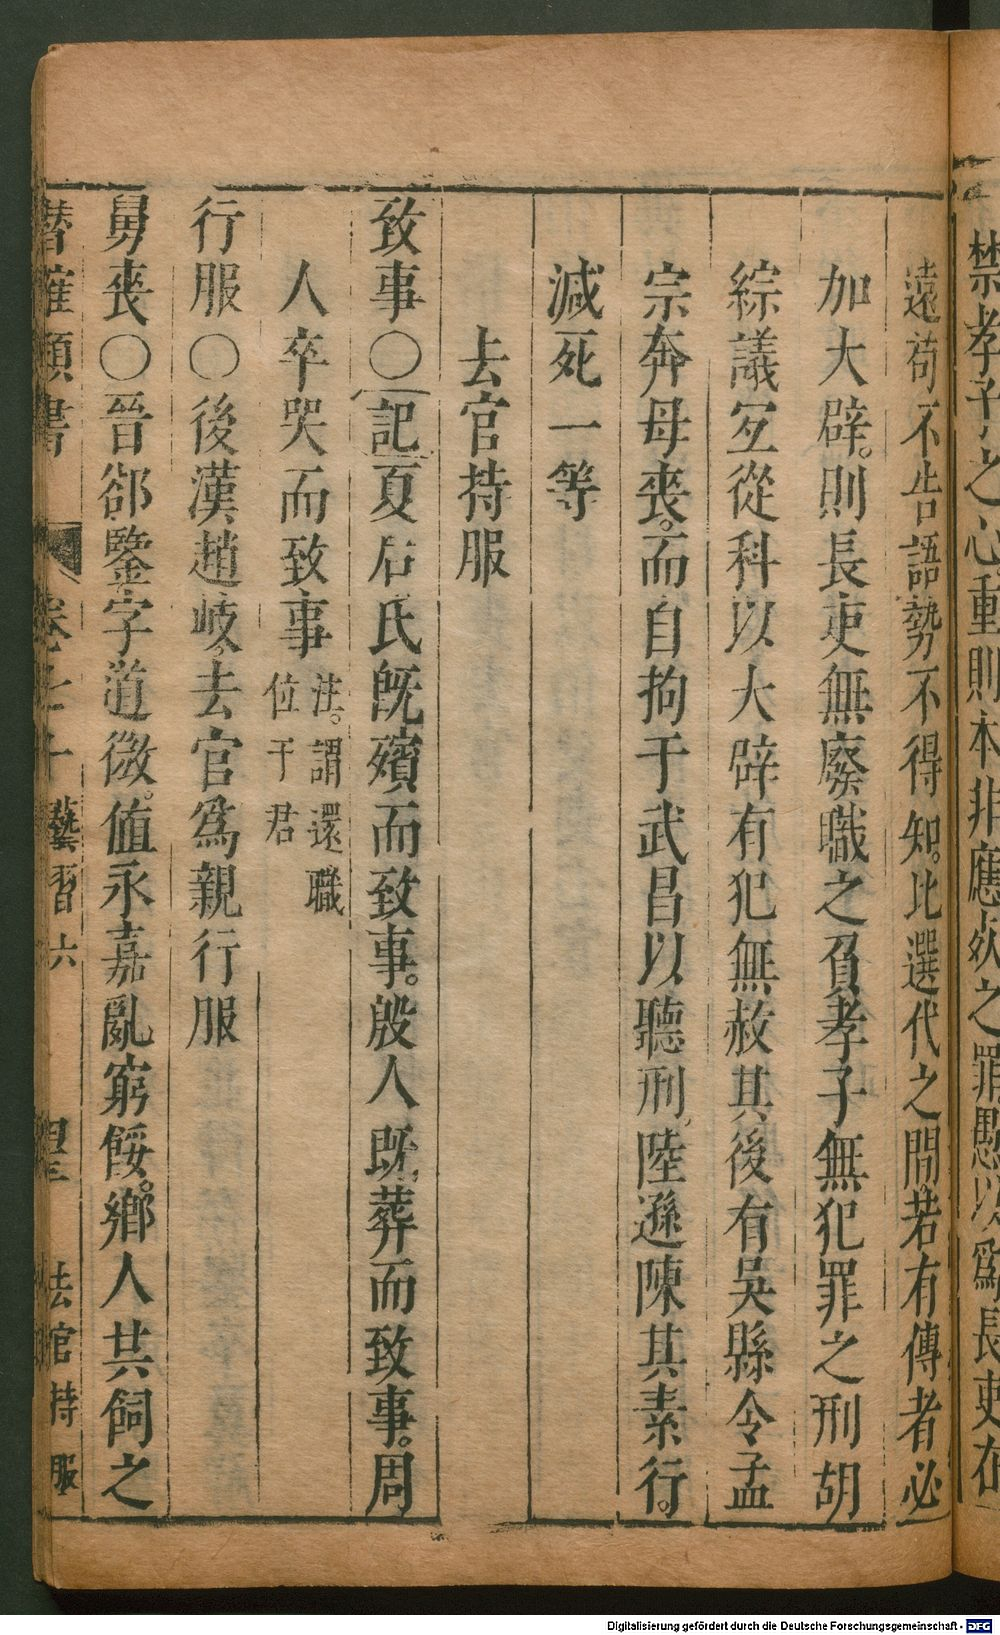 禁孝子之心重則本非應死之罪愚以爲長吏在
遠苟不告語勢不得知比選代之間若有傳者必
加大辟則長吏無廢職之負孝子無犯罪之刑胡
綜議宜從科以大辟有犯無赦其後有吳縣令孟
宗奔母喪而自拘于武昌以聽刑陸遜陳其素行
減死一等
去官持服
致事〇記夏后氏旣殯而致事殷人旣葬而致事周
人卒哭而致事
注謂還職
位于君
行服〇後漢趙岐去官爲親行服
舅喪〇晉郤鑒字道徽值永嘉亂窮餒鄉人共飼之
潛確類書 卷七十 藝習六 去官持服
Digitalisierung gefördert durch die Deutsche Forschungsgemeinschaft - DFG